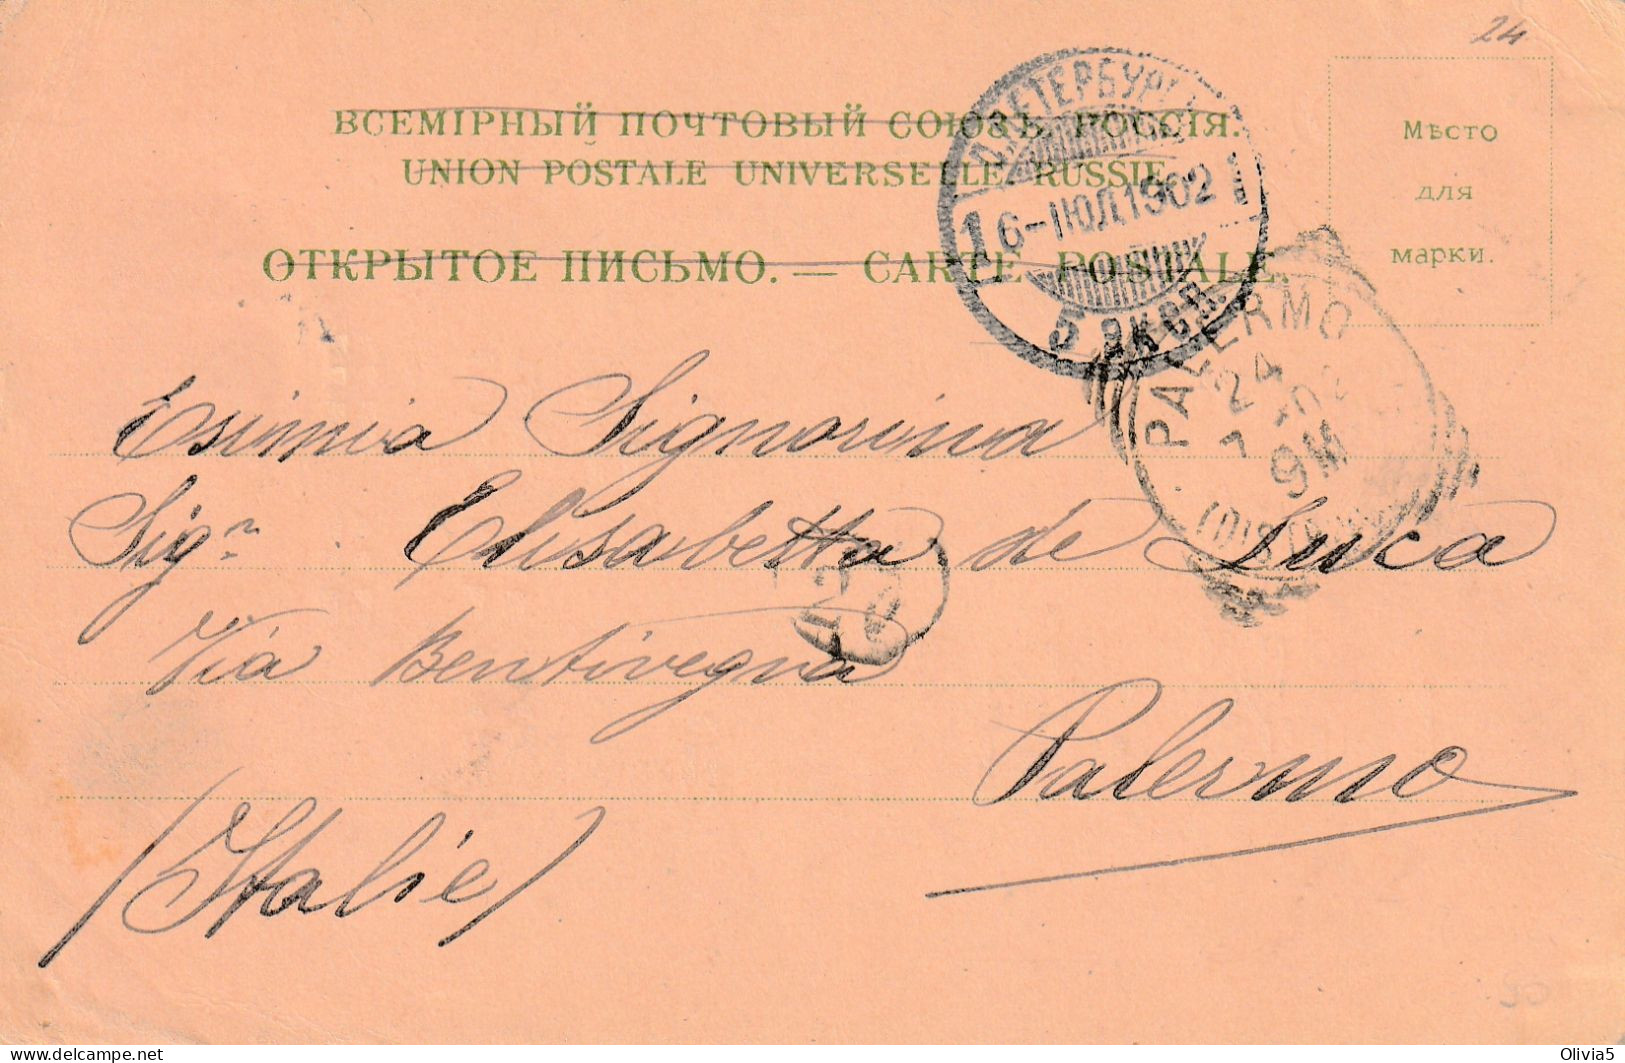 24
ВСЕМІРНЫЙ ПОЧТОВЫЙ СОЮЗЪ. РОССІЯ.
UNION POSTALE UNIVERSELLE. RUSSIE.
ОТКРЫТОЕ ПИСЬМО. — CARTE POSTALE.
Мѣсто
для
марки.
С.ПЕТЕРБУРГЪ
1 6-ІЮЛ1902 1
5 ЭКСП.
PALERMO
24
7 02
9M
Esimia Signorina
Sigrª Elisabetta de Luca
Via Bentivegna
Palermo
(Italie)
Olivia5